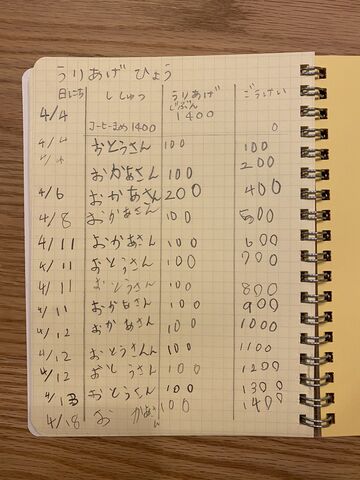 うりあげ ひょう
日にち ししゅつ うりあげ ごうけい
4/4 じぶん 1400
コーヒーまめ1400 0
4/4 おとうさん 100 100
4/4 おかあさん 100 200
4/6 おかあさん 200 400
4/8 おかあさん 100 500
4/11 おかあさん 100 600
4/11 おとうさん 100 700
4/11 おとうさん 100 800
4/11 おかあさん 100 900
4/12 おかあさん 100 1000
4/12 おとうさんん 100 1100
4/12 おとうさん 100 1200
4/13 おとうさん 100 1300
4/18 お かあさん 100 1400